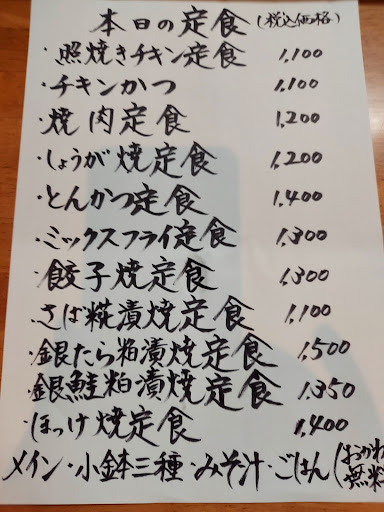 本日の定食(税込価格)
・照焼きチキン定食 1,100
・チキンかつ 1,100
・焼肉定食 1,200
・しょうが焼定食 1,200
・とんかつ定食 1,400
・ミックスフライ定食 1,300
・餃子焼定食 1,300
・さば糀漬焼定食 1,100
・銀たら粕漬焼定食 1,500
・銀鮭粕漬焼定食 1,350
・ほっけ焼定食 1,400
メイン・小鉢三種・みそ汁・ごはん(おかわ
無料